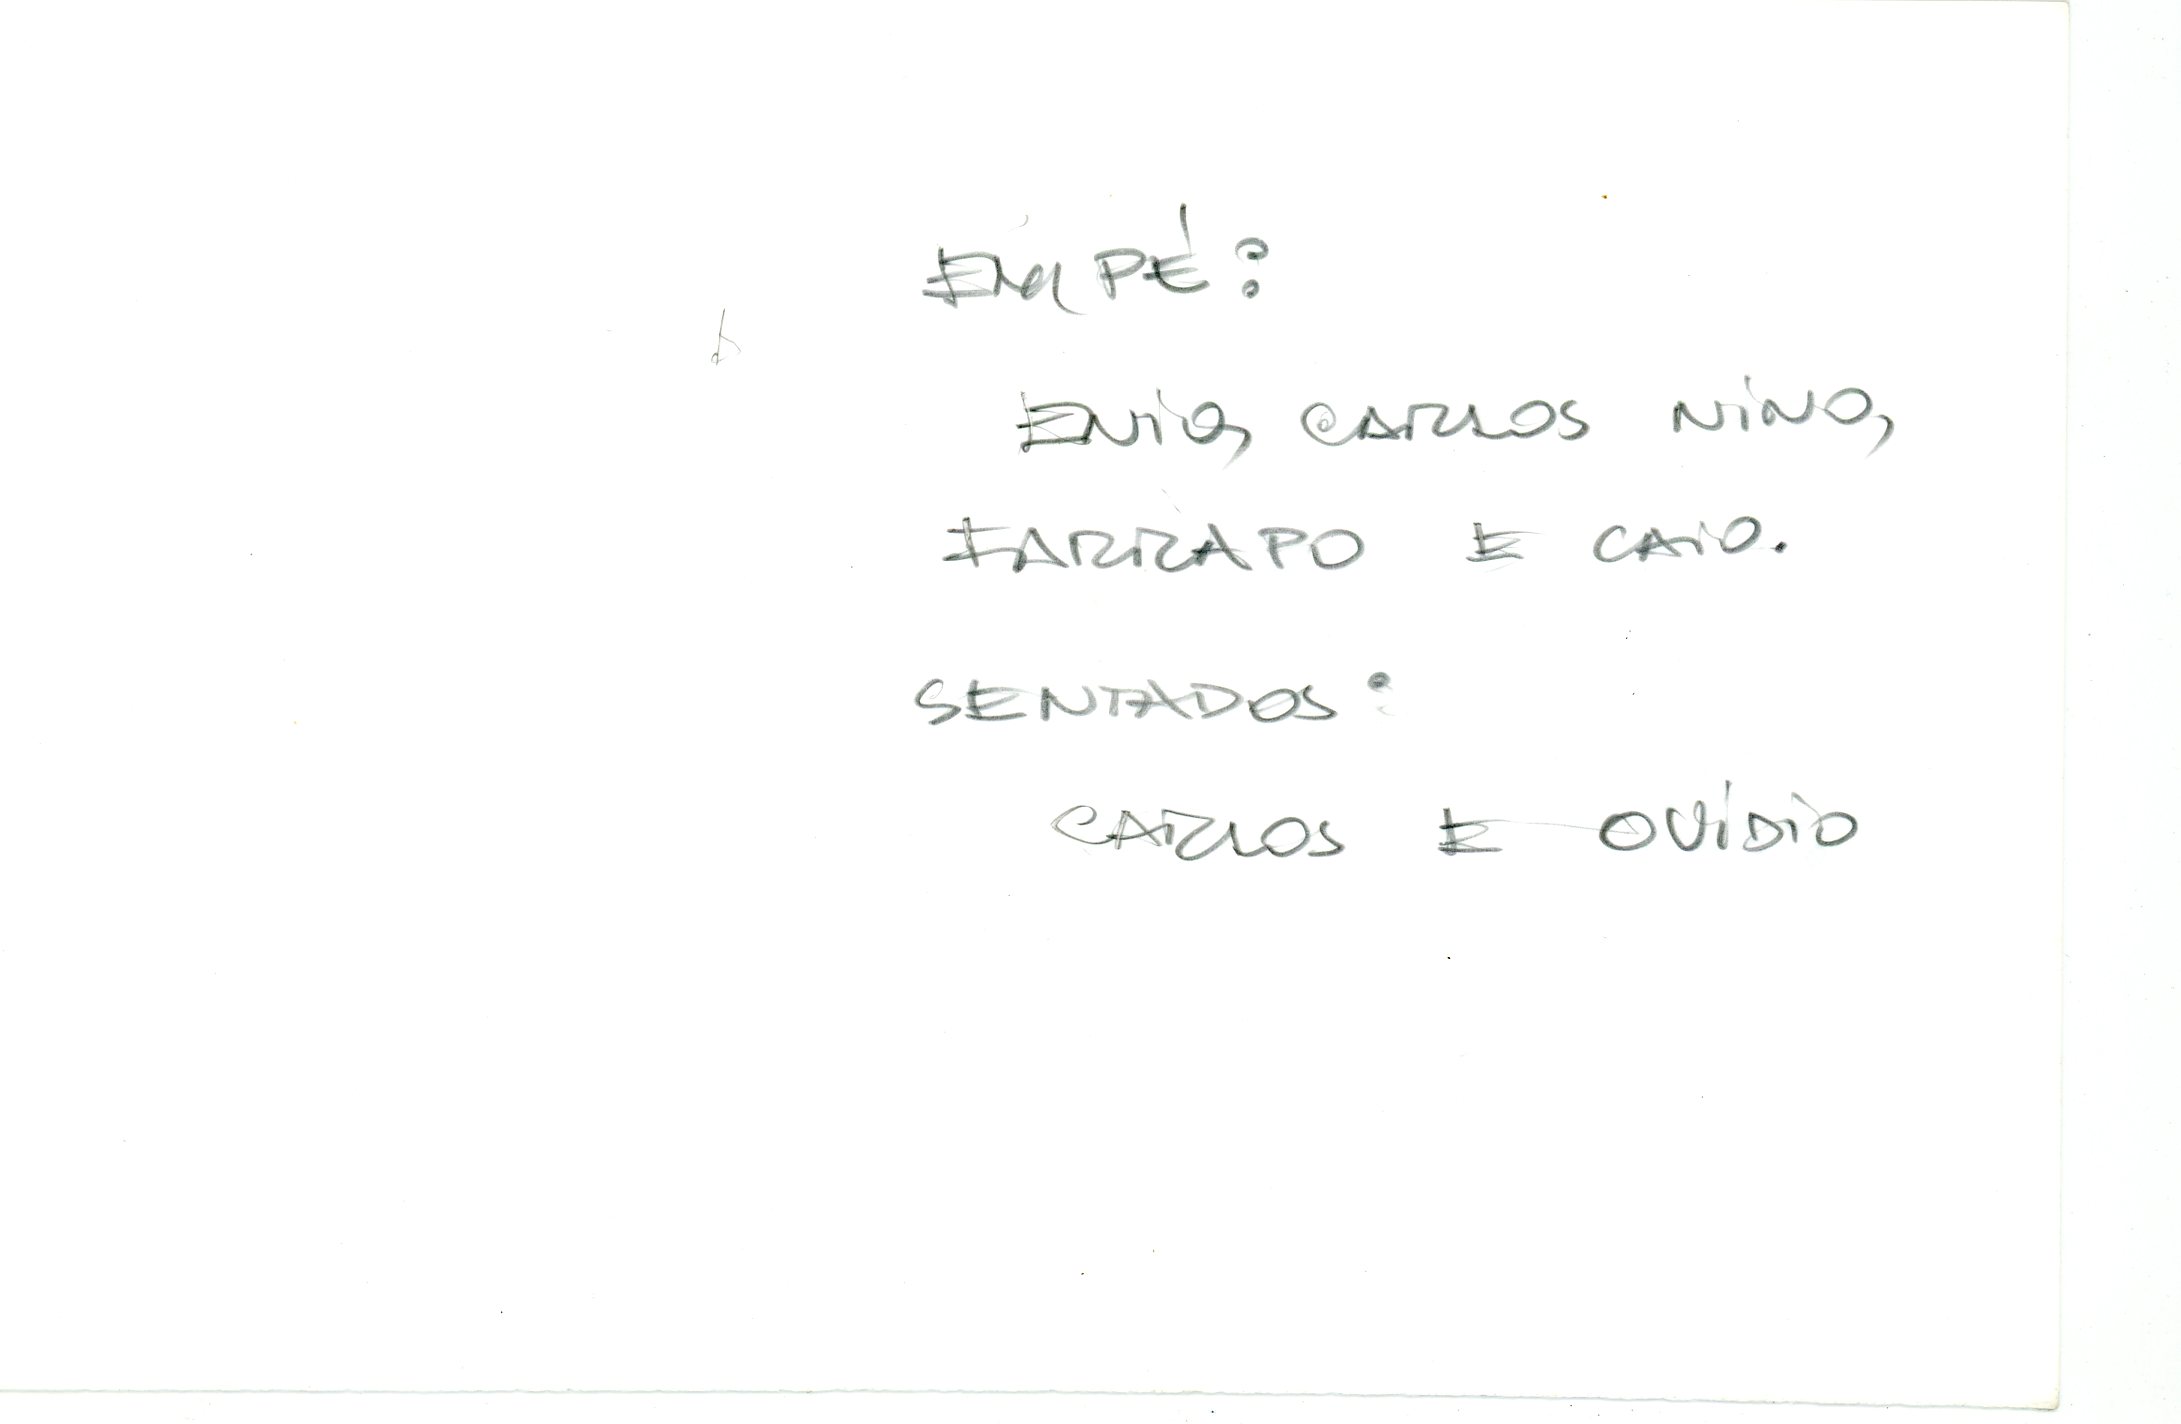 EM PÉ:
ENIO, CARLOS NINO,
FARRAPO E CAIO.
SENTADOS:
CARLOS E OVÍDIO